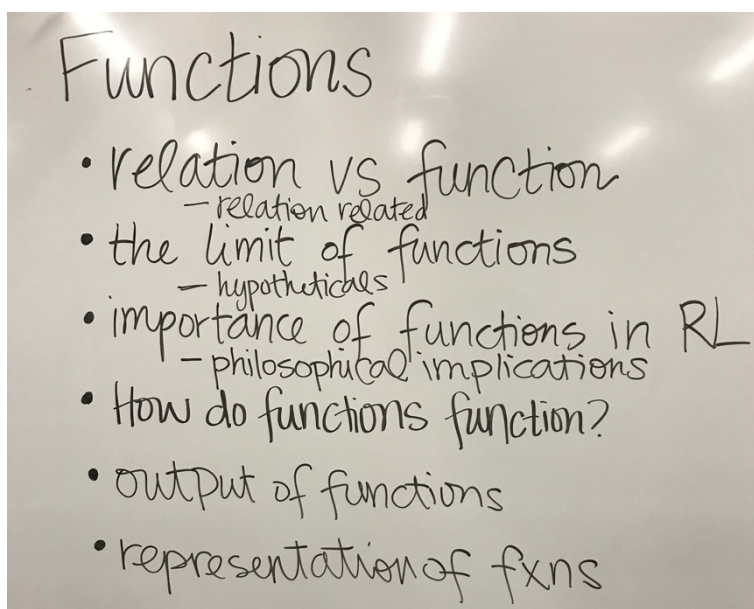 Functions
• relation vs function
- relation related
• the limit of functions
- hypotheticals
• importance of functions in RL
- philosophical implications
• How do functions function?
• output of functions
• representation of fxns